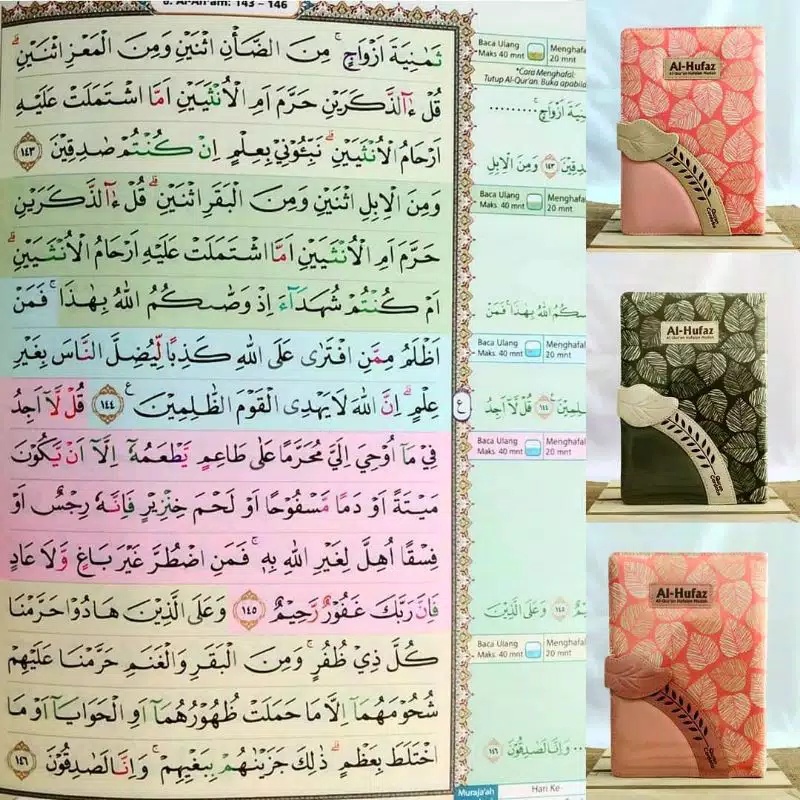 6. Al-An'am: 143 - 146
ثَمٰنِيَةَ اَزْوَاجٍۚ مِنَ الضَّأْنِ اثْنَيْنِ وَمِنَ الْمَعْزِ اثْنَيْنِۗ
قُلْ ءٰۤالذَّكَرَيْنِ حَرَّمَ اَمِ الْاُنْثَيَيْنِ اَمَّا اشْتَمَلَتْ عَلَيْهِ
اَرْحَامُ الْاُنْثَيَيْنِۗ نَبِّـُٔوْنِيْ بِعِلْمٍ اِنْ كُنْتُمْ صٰدِقِيْنَ ١٤٣
وَمِنَ الْاِبِلِ اثْنَيْنِ وَمِنَ الْبَقَرِ اثْنَيْنِۗ قُلْ ءٰۤالذَّكَرَيْنِ
حَرَّمَ اَمِ الْاُنْثَيَيْنِ اَمَّا اشْتَمَلَتْ عَلَيْهِ اَرْحَامُ الْاُنْثَيَيْنِۗ
اَمْ كُنْتُمْ شُهَدَاۤءَ اِذْ وَصّٰىكُمُ اللّٰهُ بِهٰذَاۚ فَمَنْ
اَظْلَمُ مِمَّنِ افْتَرٰى عَلَى اللّٰهِ كَذِبًا لِّيُضِلَّ النَّاسَ بِغَيْرِ
عِلْمٍۗ اِنَّ اللّٰهَ لَا يَهْدِى الْقَوْمَ الظّٰلِمِيْنَ ࣖ ١٤٤ قُلْ لَّآ اَجِدُ
فِيْ مَآ اُوْحِيَ اِلَيَّ مُحَرَّمًا عَلٰى طَاعِمٍ يَّطْعَمُهٗٓ اِلَّآ اَنْ يَّكُوْنَ
مَيْتَةً اَوْ دَمًا مَّسْفُوْحًا اَوْ لَحْمَ خِنْزِيْرٍ فَاِنَّهٗ رِجْسٌ اَوْ
فِسْقًا اُهِلَّ لِغَيْرِ اللّٰهِ بِهٖۚ فَمَنِ اضْطُرَّ غَيْرَ بَاغٍ وَّلَا عَادٍ
فَاِنَّ رَبَّكَ غَفُوْرٌ رَّحِيْمٌ ١٤٥ وَعَلَى الَّذِيْنَ هَادُوْا حَرَّمْنَا
كُلَّ ذِيْ ظُفُرٍۚ وَمِنَ الْبَقَرِ وَالْغَنَمِ حَرَّمْنَا عَلَيْهِمْ
شُحُوْمَهُمَآ اِلَّا مَا حَمَلَتْ ظُهُوْرُهُمَآ اَوِ الْحَوَايَآ اَوْ مَا
اخْتَلَطَ بِعَظْمٍۗ ذٰلِكَ جَزَيْنٰهُمْ بِبَغْيِهِمْۚ وَاِنَّا لَصٰدِقُوْنَ ١٤٦
Baca Ulang
Maks 40 mnt
Menghafal
20 mnt
*Cara Menghafal:
Tutup Al-Qur'an. Buka apabila
اَزْوَاجٍۚ ..........
١٤٣ وَمِنَ الْاِبِلِ
Baca Ulang
Maks. 40 mnt
Menghafal
20 mnt
اللّٰهُ بِهٰذَاۚ فَمَنْ
Baca Ulang
Maks. 40 mnt
Menghafal
20 mnt
ع
١٤٤ قُلْ لَّآ اَجِدُ
Baca Ulang
Maks. 40 mnt
Menghafal
20 mnt
١٤٥ وَعَلَى الَّذِيْنَ
Baca Ulang
Maks. 40 mnt
Menghafal
20 mnt
وَاِنَّا لَصٰدِقُوْنَ ١٤٦
Muraja'ah
Hari Ke-
Al-Hufaz
Al-Qur'an Hafalan Mudah
Quran Cordoba
Al-Hufaz
Al-Qur'an Hafalan Mudah
Quran Cordoba
Al-Hufaz
Al-Qur'an Hafalan Mudah
Quran Cordoba